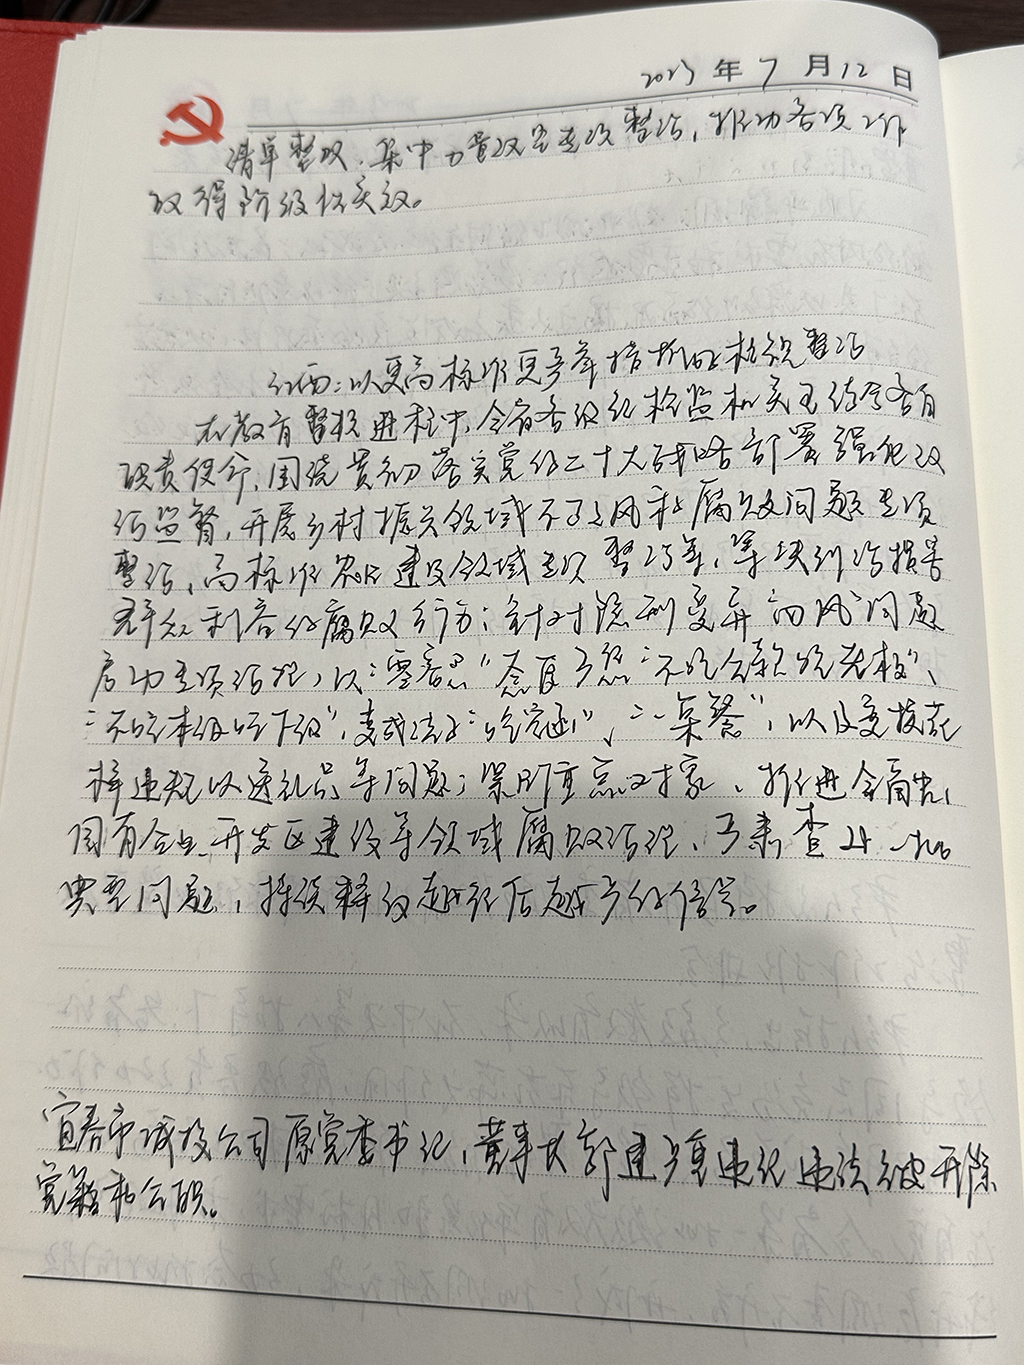 2023年7月12日
清单整改，集中力量攻坚专项整治，推动各项工作
取得阶段性实效。
江西：以更高标准更多举措抓好检视整治
在教育整顿进程中，全省各级纪检监机关围绕各自
职责使命，围绕贯彻落实党的二十大战略部署强化政
治监督，开展乡村振兴领域不正之风和腐败问题专项
整治，高标准农田建设领域专项整治等，坚决纠治损害
群众利益的腐败行为；针对隐形变异"四风"问题
启动专项治理，
"不吃本级吃下级"，变成"吃食堂"、"一桌餐"，以及快递花
样违规收送礼品等问题；紧盯重点对象，推进金融、
国有企业、开发区建设等领域腐败治理，严肃查处一批
典型问题，持续释放越往后越严的信号。
宜春市城投公司原党委书记，董事长郭建严重违纪违法被开除
党籍和公职。